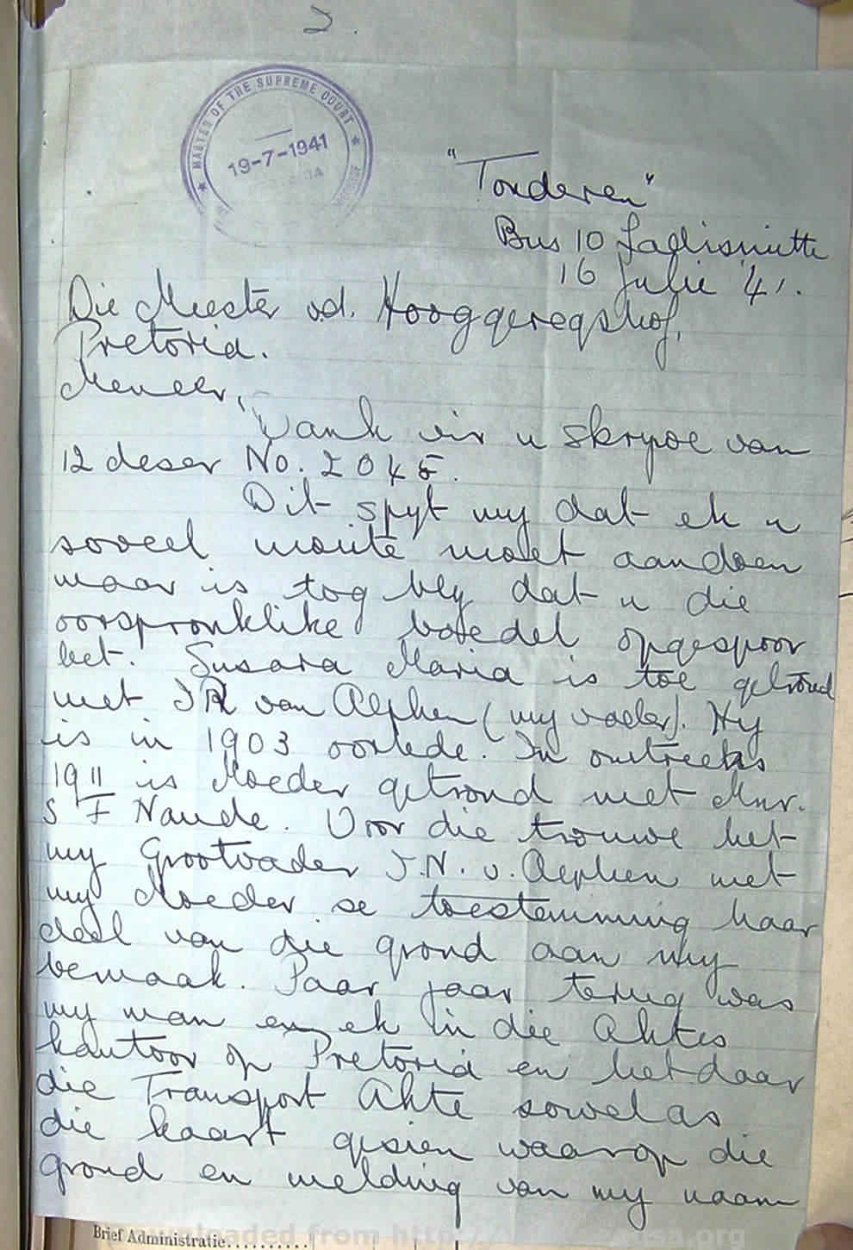 2.
MASTER OF THE SUPREME COURT
19-7-1941
"Tonderen"
Bus 10
16 Julie '41.
Die Meester v.d. Hooggeregshof,
Pretoria.
Meneer,
Dank vir u skrywe van
12 deser No. 2045.
Dit spyt my dat ek u
soveel moeite moet aandoen
maar is tog bly dat u die
oorspronklike boedel opgespoor
het. Susara Maria is toe getroud
met J R van Alphen (my vader). Hy
is in 1903 oorlede. In omtreeks
1911 is Moeder getroud met Mnr.
S F Naude. Voor die trouwe het
my Grootvader J.N. v. Alphen met
my Moeder se toestemming haar
deel van die grond aan my
bemaak. Paar jaar terug was
my man en ek in die Aktes
kantoor op Pretoria en het daar
die Transport Akte sowel as
die kaart gesien waarop die
grond en melding van my naam
Brief Administratie..........
Downloaded from http://